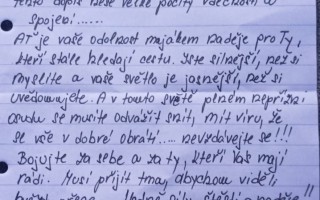 tento dopis nese velké pocity vděčnosti a
spojení......
Ať je vaše odolnost majákem naděje pro ty,
kteří stále hledají cestu. Jste silnější, než si
myslíte a vaše světlo je jasnější, než si
uvědomujete. A v tomto světě plném nepřízní
osudu se musíte odvážit snít, mít víru, že
se vše v dobré obrátí..... nevzdávejte se!!!
Bojujte za sebe a za ty, kteří Vás mají
rádi. Musí přijít tma, abychom viděli